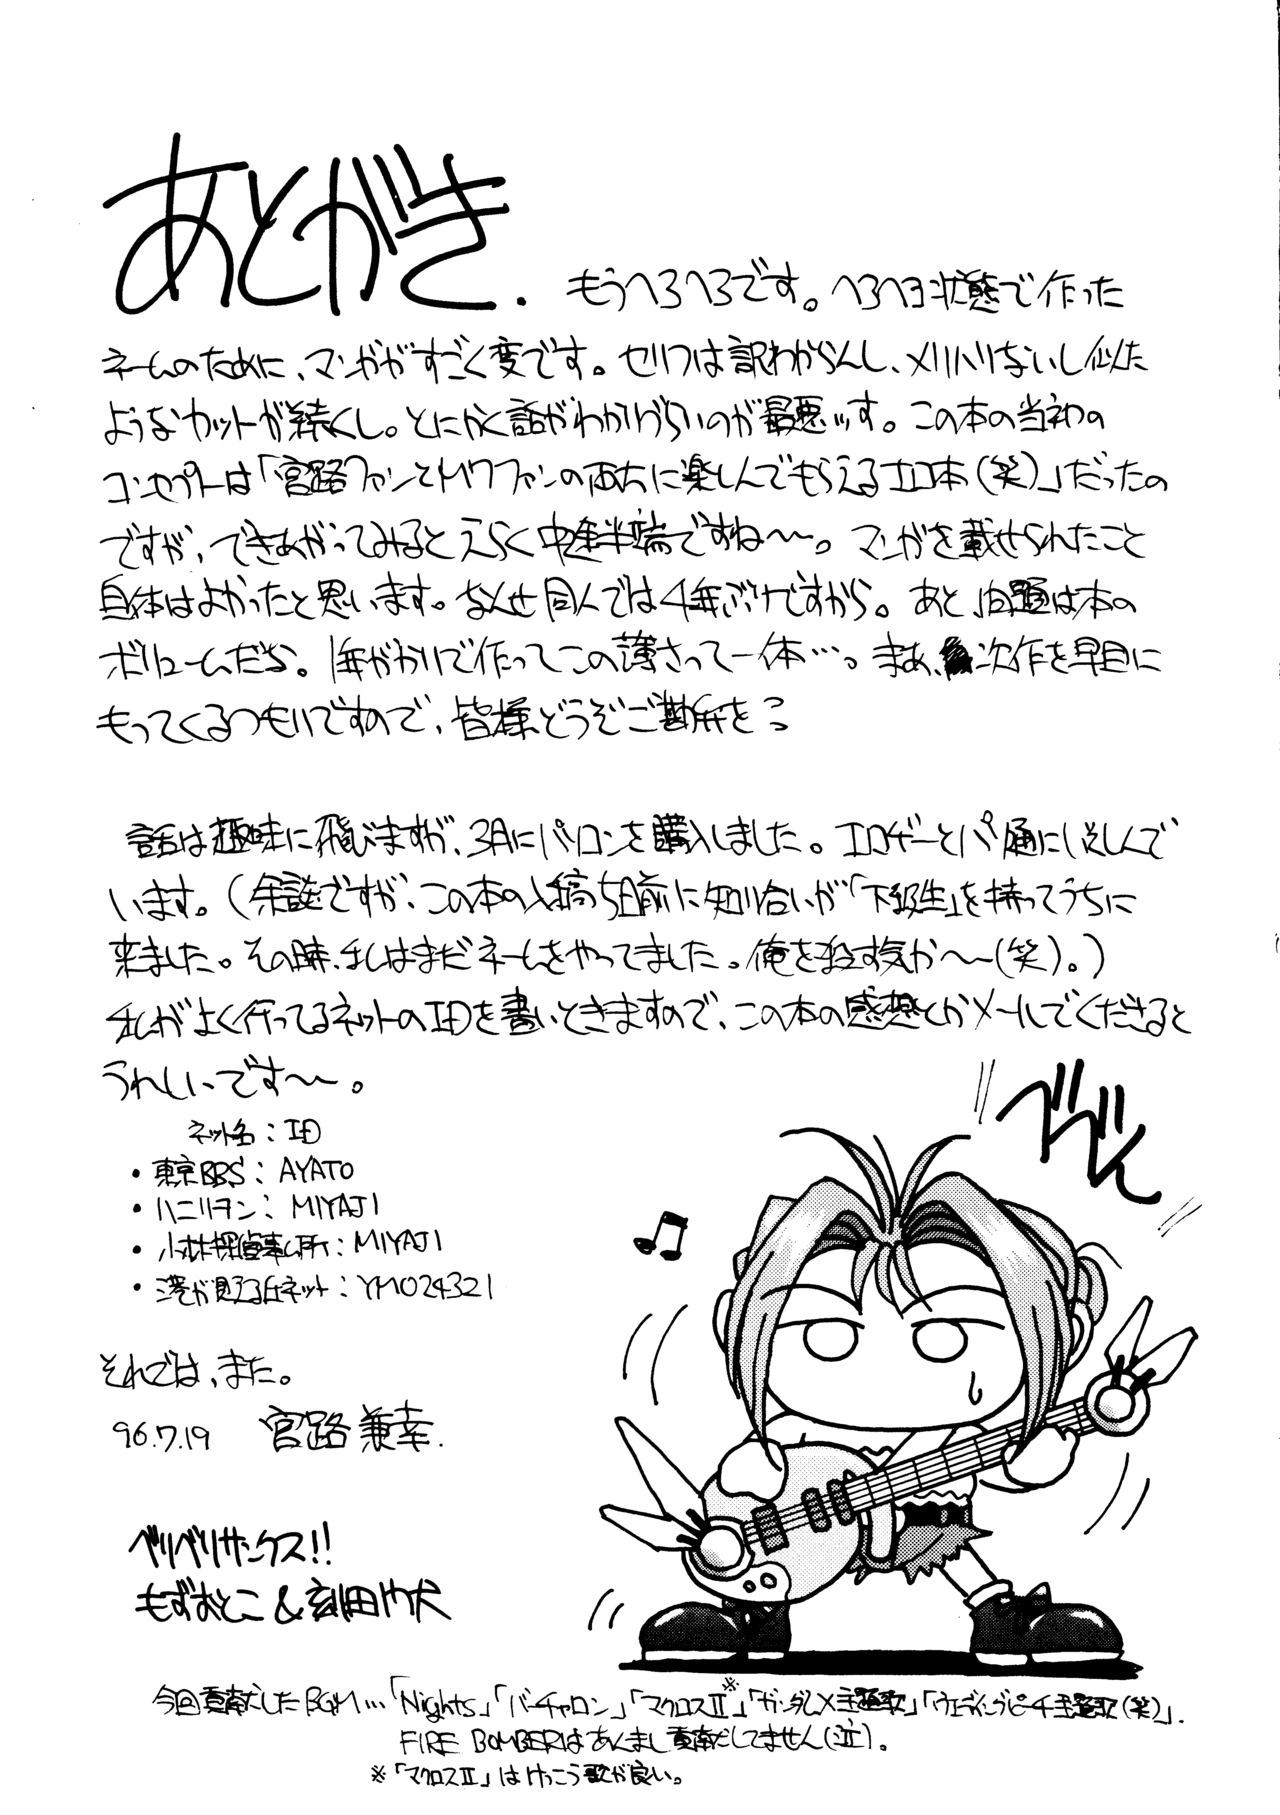 あとがき.
もうヘろヘろです。ヘろヘろ状態で作った
ネームのために、マンガがすごく変です。セリフは訳わからんし、メリハリないし似た
ようなカットが続くし。とにかく話がわかりづらいのが最悪ッす。この本の当初の
コンセプトは「宮路ファンとMWファンの両方に楽しんでもらえるエロ本(笑)」だったの
ですが、できあがってみるとえらく中途半端ですね〜〜。マンガを載せられたこと
自体はよかったと思います。なんせ同人では4年ぶりですから。あと、問題は本の
ボリュームだな。1年がかりで作ってこの薄さって一体…。まあ、次作を早目に
もってくるつもりですので、皆様どうぞご勘弁を
話は趣味に飛びますが、3月にパソコンを購入しました。エロゲーとパソ通にいそしんで
います。(余談ですが、この本の入稿5日前に知り合いが「下級生」を持ってうちに
来ました。その時、私はまだネームをやってました。俺を殺す気か〜〜(笑)。)
私がよく行ってるネットのIDを書いときますので、この本の感想とかメールでくださると
うれしいです〜〜。
ネット名:ID
・東京BBS:AYATO
・ハニリヲン:MIYAJI
・小林探偵事ム所:MIYAJI
・港が見える丘ネット:YMO24321
それでは、また。
96.7.19 宮路兼幸.
ベリベリサンクス!!
もずおとこ&刻田
ベベベン
♪
今回貢献したBGM…「Nights」「バーチャロン」「マクロスII」※「ガンダムX主題歌」「ウェディングピーチ主題歌(笑)」.
FIRE BOMBERはあんまし貢献してません(泣)。
※「マクロスII」はけっこう歌が良い。